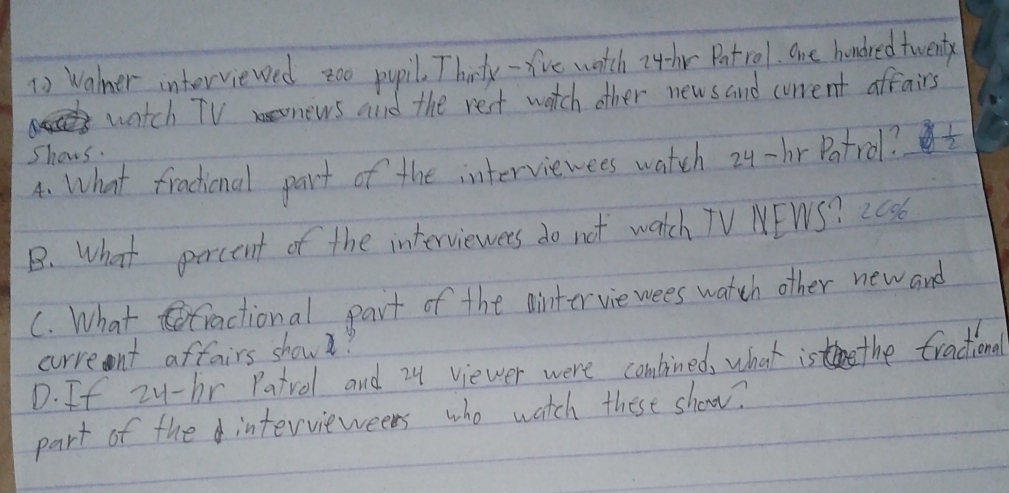 1) Walner interviewed 200 pupil. Thirty-five watch 24-hr Patrol. One hundred twenty
watch TV news and the rest watch other news and current affrairs
shows.
A. What fractional part of the interviewees watch 24-hr Patrol? 1/2
B. What percent of the interviewees do not watch TV NEWS? 20%
C. What fractional part of the interviewees watch other new and
current affairs show?
D. If 24-hr Patrol and 24 viewer were combined, what is the fractional
part of the interviewees who watch these show?